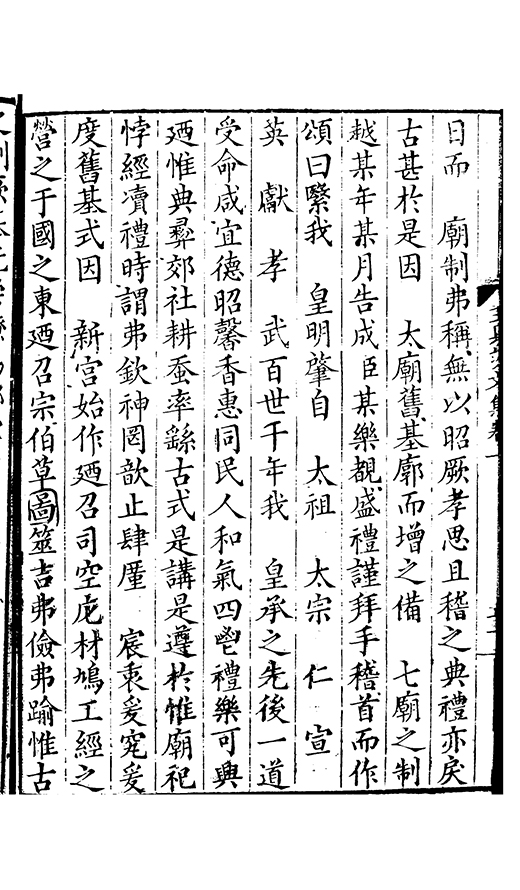 日而　廟制弗稱無以昭厥孝思且稽之典禮亦戾
古甚於是因　太廟舊基廓而增之備　七廟之制
越某年某月告成臣某樂覩盛禮謹拜手稽首而作
頌曰繄我　皇明肇自　太祖　太宗　仁　宣
英　獻　孝　武百世千年我　皇承之先後一道
受命咸宜德昭馨香惠同民人和氣四鬯禮樂可興
廼惟典彞郊社耕蚕率繇古式是講是遵於惟廟祀
悖經凟禮時謂弗欽神罔歆止肆厪　宸衷爰究爰
度舊基式因　新宮始作廼召司空庀材鳩工經之
營之于國之東廼召宗伯草圖筮吉弗儉弗踰惟古